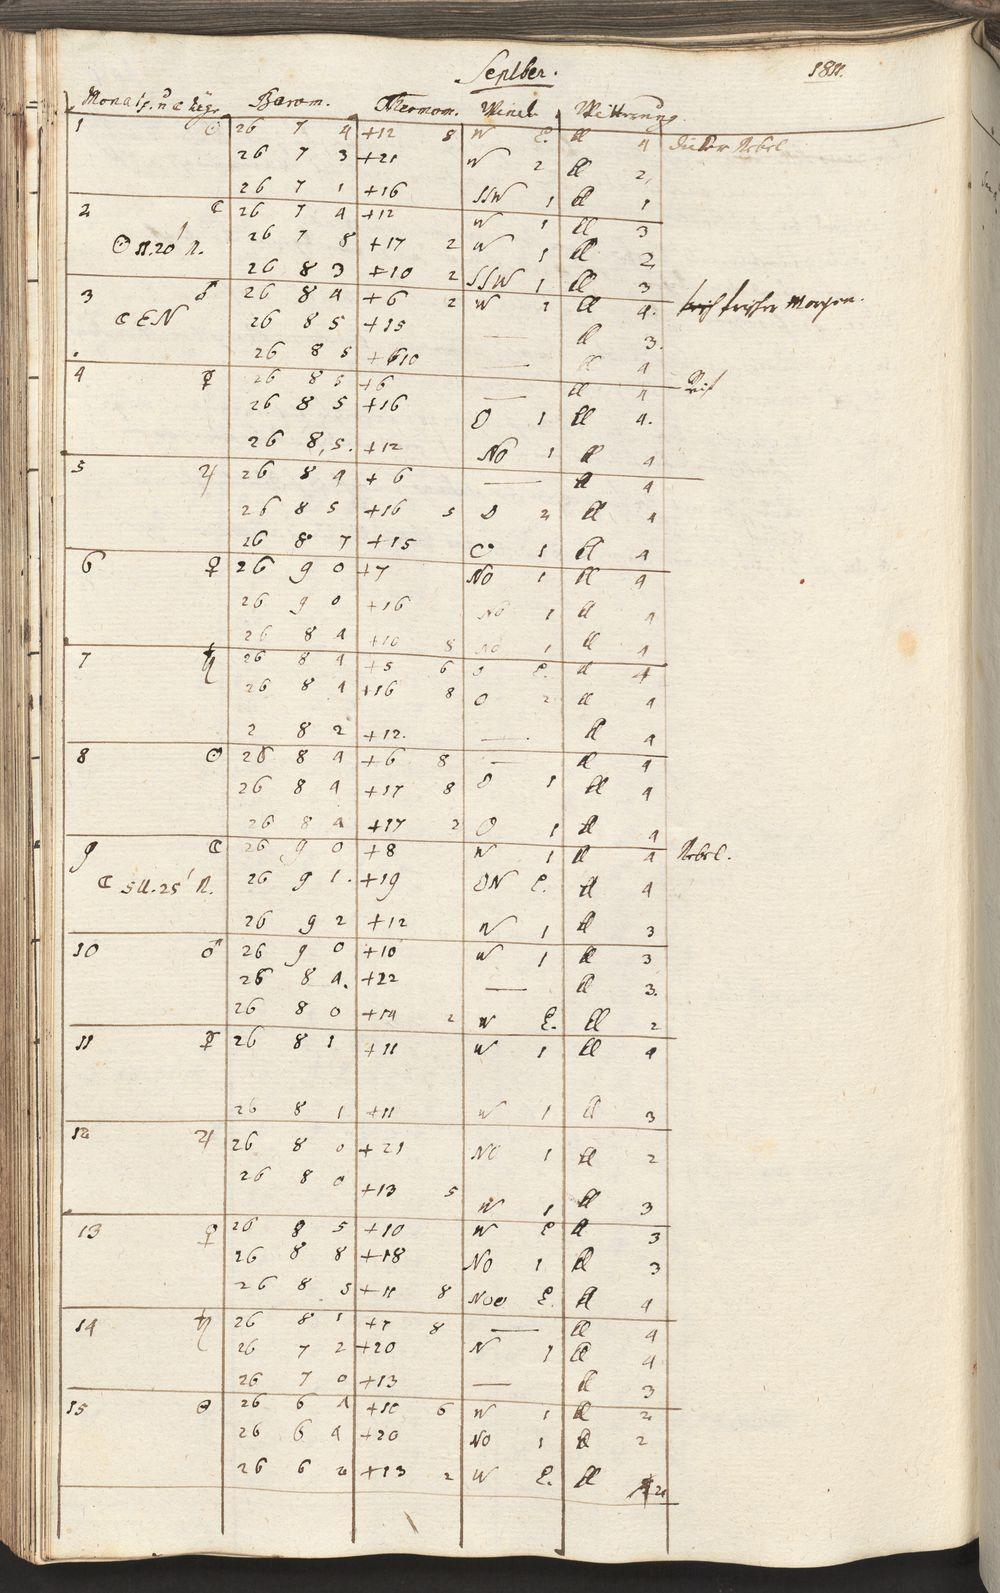 Septber. 1811.
Monats. u a tage Barom. Thermom. Wind. Witterung
1 ☉ 26 7 4 +12 8 W E. tl 4 dicker Nebel
26 7 3 +21 W 2 tl 2
26 7 1 +16 SSW 1 tl 1
2 ☾ 26 7 4 +12 W 1 tl 3
☉ 11. 20' N. 26 7 8 +17 2 W 1 tl 2
26 8 3 +10 2 SSW 1 tl 3
3 ♂ 26 8 4 +6 2 W 1 tl 4. frischer Morgen.
☾ EN 26 8 5 +15 — tl 3.
26 8 5 +10 — tl 4
4 ☿ 26 8 5 +6 — tl 4 Reif
26 8 5 +16 O 1 tl 4.
26 8,5. +12 NO 1 tl 4
5 ♃ 26 8 4 +6 — tl 4
26 8 5 +16 5 O 2 tl 4
26 8 7 +15 O 1 tl 4
6 ♀ 26 9 0 +7 NO 1 tl 4
26 9 0 +16 NO 1 tl 4
26 8 4 +10 8 NO 1 tl 4
7 ♄ 26 8 4 +5 6 O E. tl 4
26 8 4 +16 8 O 2 tl 4
2 8 2 +12. — tl 4
8 ☉ 26 8 4 +6 8 — tl 4
26 8 4 +17 8 O 1 tl 4
26 8 4 +17 2 O 1 tl 4
9 ☾ 26 9 0 +8 W 1 tl 4 Nebel.
☾ 5 U. 25' N. 26 9 1. +19 ON E. tl 4
26 9 2 +12 W 1 tl 3
10 ♂ 26 9 0 +10 W 1 tl 3
26 8 4. +22 — tl 3.
26 8 0 +14 2 W E. tl 2
11 ☿ 26 8 1 +11 W 1 tl 4
26 8 1 +11 W 1 tl 3
12 ♃ 26 8 0 +21 NO 1 tl 2
26 8 0 +13 5 W 1 tl 3
13 ♀ 26 8 5 +10 W E tl 3
26 8 8 +18 NO 1 tl 3
26 8 5 +11 8 NOO E. tl 4
14 ♄ 26 8 1 +7 8 — tl 4
26 7 2 +20 N 1 tl 4
26 7 0 +13 — tl 3
15 ☉ 26 6 4 +10 6 W 1 tl 2
26 6 4 +20 NO 1 tl 2
26 6 2 +13 2 W E. tl 2